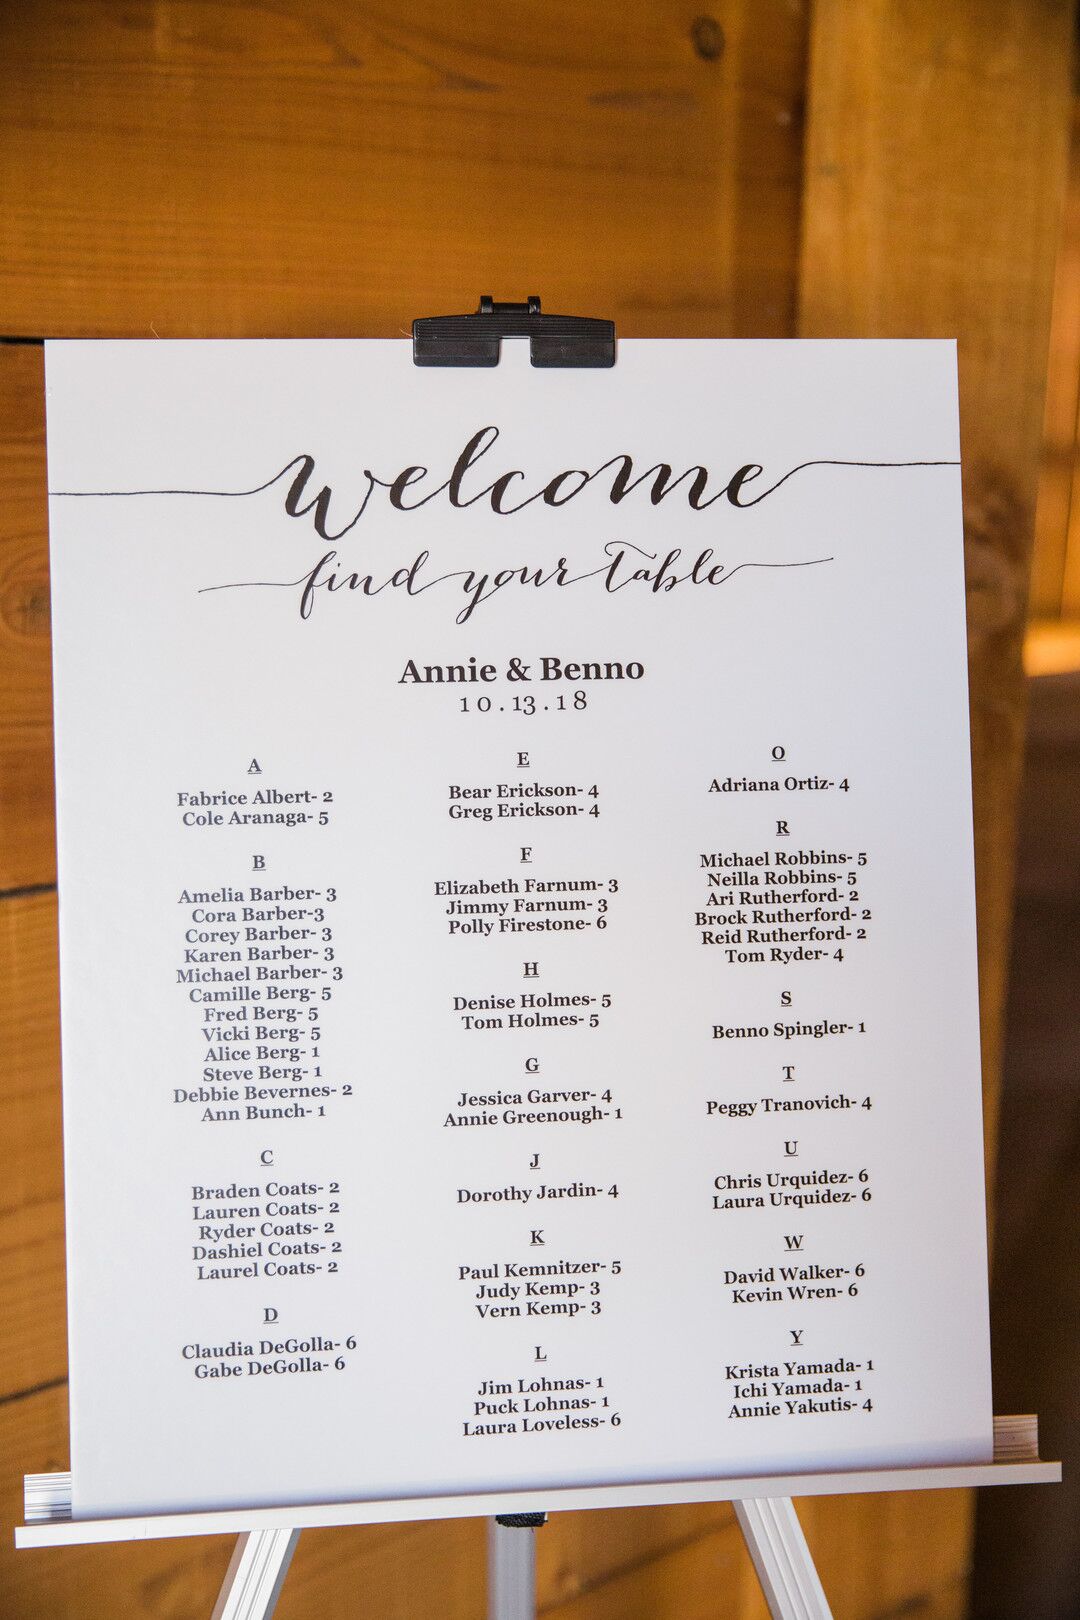 welcome
find your table
Annie & Benno
10.13.18
A
Fabrice Albert- 2
Cole Aranaga- 5
B
Amelia Barber- 3
Cora Barber-3
Corey Barber- 3
Karen Barber- 3
Michael Barber- 3
Camille Berg- 5
Fred Berg- 5
Vicki Berg- 5
Alice Berg- 1
Steve Berg- 1
Debbie Bevernes- 2
Ann Bunch- 1
C
Braden Coats- 2
Lauren Coats- 2
Ryder Coats- 2
Dashiel Coats- 2
Laurel Coats- 2
D
Claudia DeGolla- 6
Gabe DeGolla- 6
E
Bear Erickson- 4
Greg Erickson- 4
F
Elizabeth Farnum- 3
Jimmy Farnum- 3
Polly Firestone- 6
H
Denise Holmes- 5
Tom Holmes- 5
G
Jessica Garver- 4
Annie Greenough- 1
J
Dorothy Jardin- 4
K
Paul Kemnitzer- 5
Judy Kemp- 3
Vern Kemp- 3
L
Jim Lohnas- 1
Puck Lohnas- 1
Laura Loveless- 6
O
Adriana Ortiz- 4
R
Michael Robbins- 5
Neilla Robbins- 5
Ari Rutherford- 2
Brock Rutherford- 2
Reid Rutherford- 2
Tom Ryder- 4
S
Benno Spingler- 1
T
Peggy Tranovich- 4
U
Chris Urquidez- 6
Laura Urquidez- 6
W
David Walker- 6
Kevin Wren- 6
Y
Krista Yamada- 1
Ichi Yamada- 1
Annie Yakutis- 4